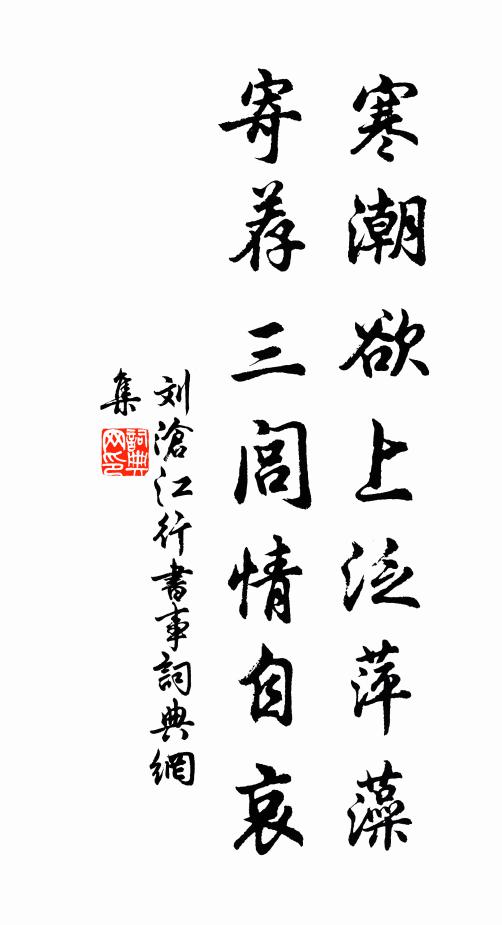 寒潮欲上泛萍藻
寄荐三闾情自哀
刘滄江行書事詞典網
集
詞典网印